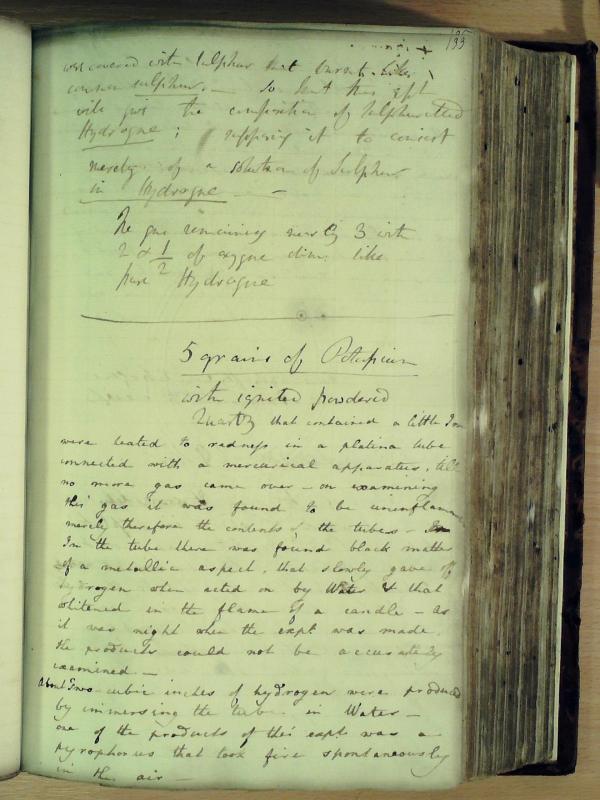 135
was covered with sulphur that burnt like
common sulphur. — So that this expt
will give the composition of sulphuretted
Hydrogne ; supposing it to consist
merely of a solution of Sulphur
in Hydrogne —
The gas remaining nearly 3 with
2 & 1/2 of oxygne dim: like
pure Hydrogne
5 grains of Potassium
with ignited powdered
Quartz that contained a little Iron
were heated to redness in a platina tube
connected with a mercurial apparatus, till
no more gas came over — on examining
this gas it was found to be uninflammable
merely therefore the contents of the tubes —
In the tube there was found black matter
of a metallic aspect, that slowly gave off
hydrogen when acted on by Water & that
whitened in the flame of a candle — as
it was night when the expt. was made.
the products could not be accurately
examined —
About Two cubic inches of hydrogen were produced
by immersing the tube in Water —
one of the products of this expt was a
pyrophorus that took fire spontaneously
in the air —